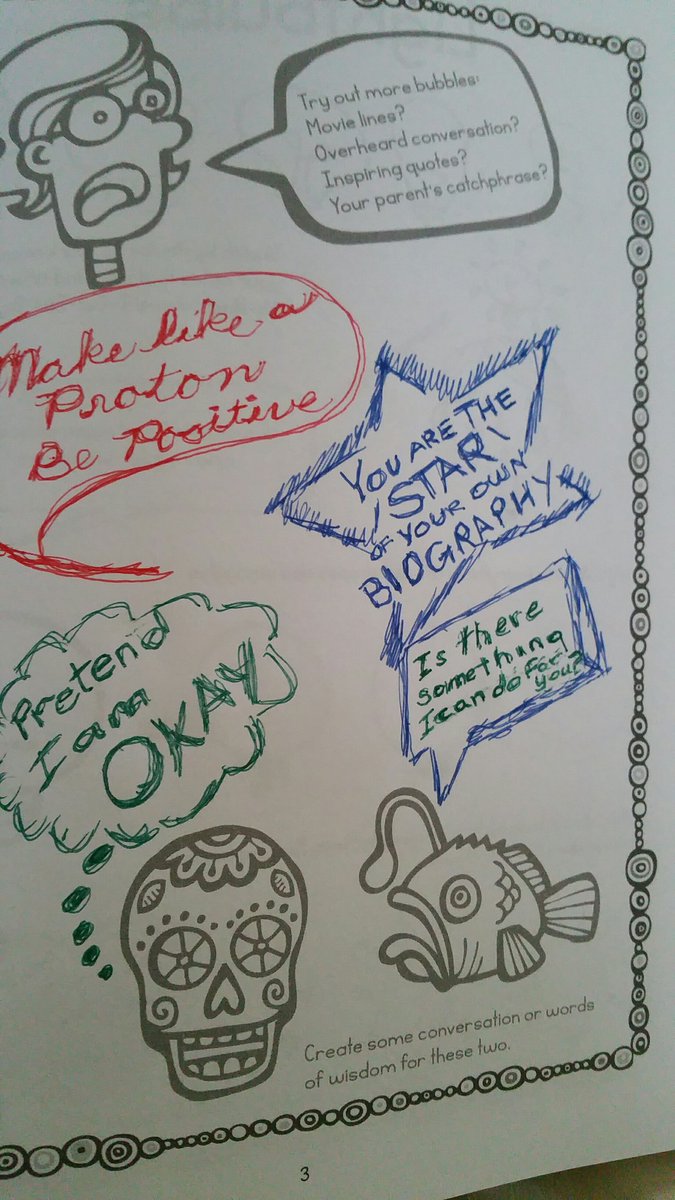 Try out more bubbles:
Movie lines?
Overheard conversation?
Inspiring quotes?
Your parent's catchphrase?
Make like a
Proton
Be Positive
YOU ARE THE
STAR
OF YOUR OWN
BIOGRAPHY
Pretend
I am
OKAY
Is there
something
I can do for
you?
Create some conversation or words
of wisdom for these two.
3